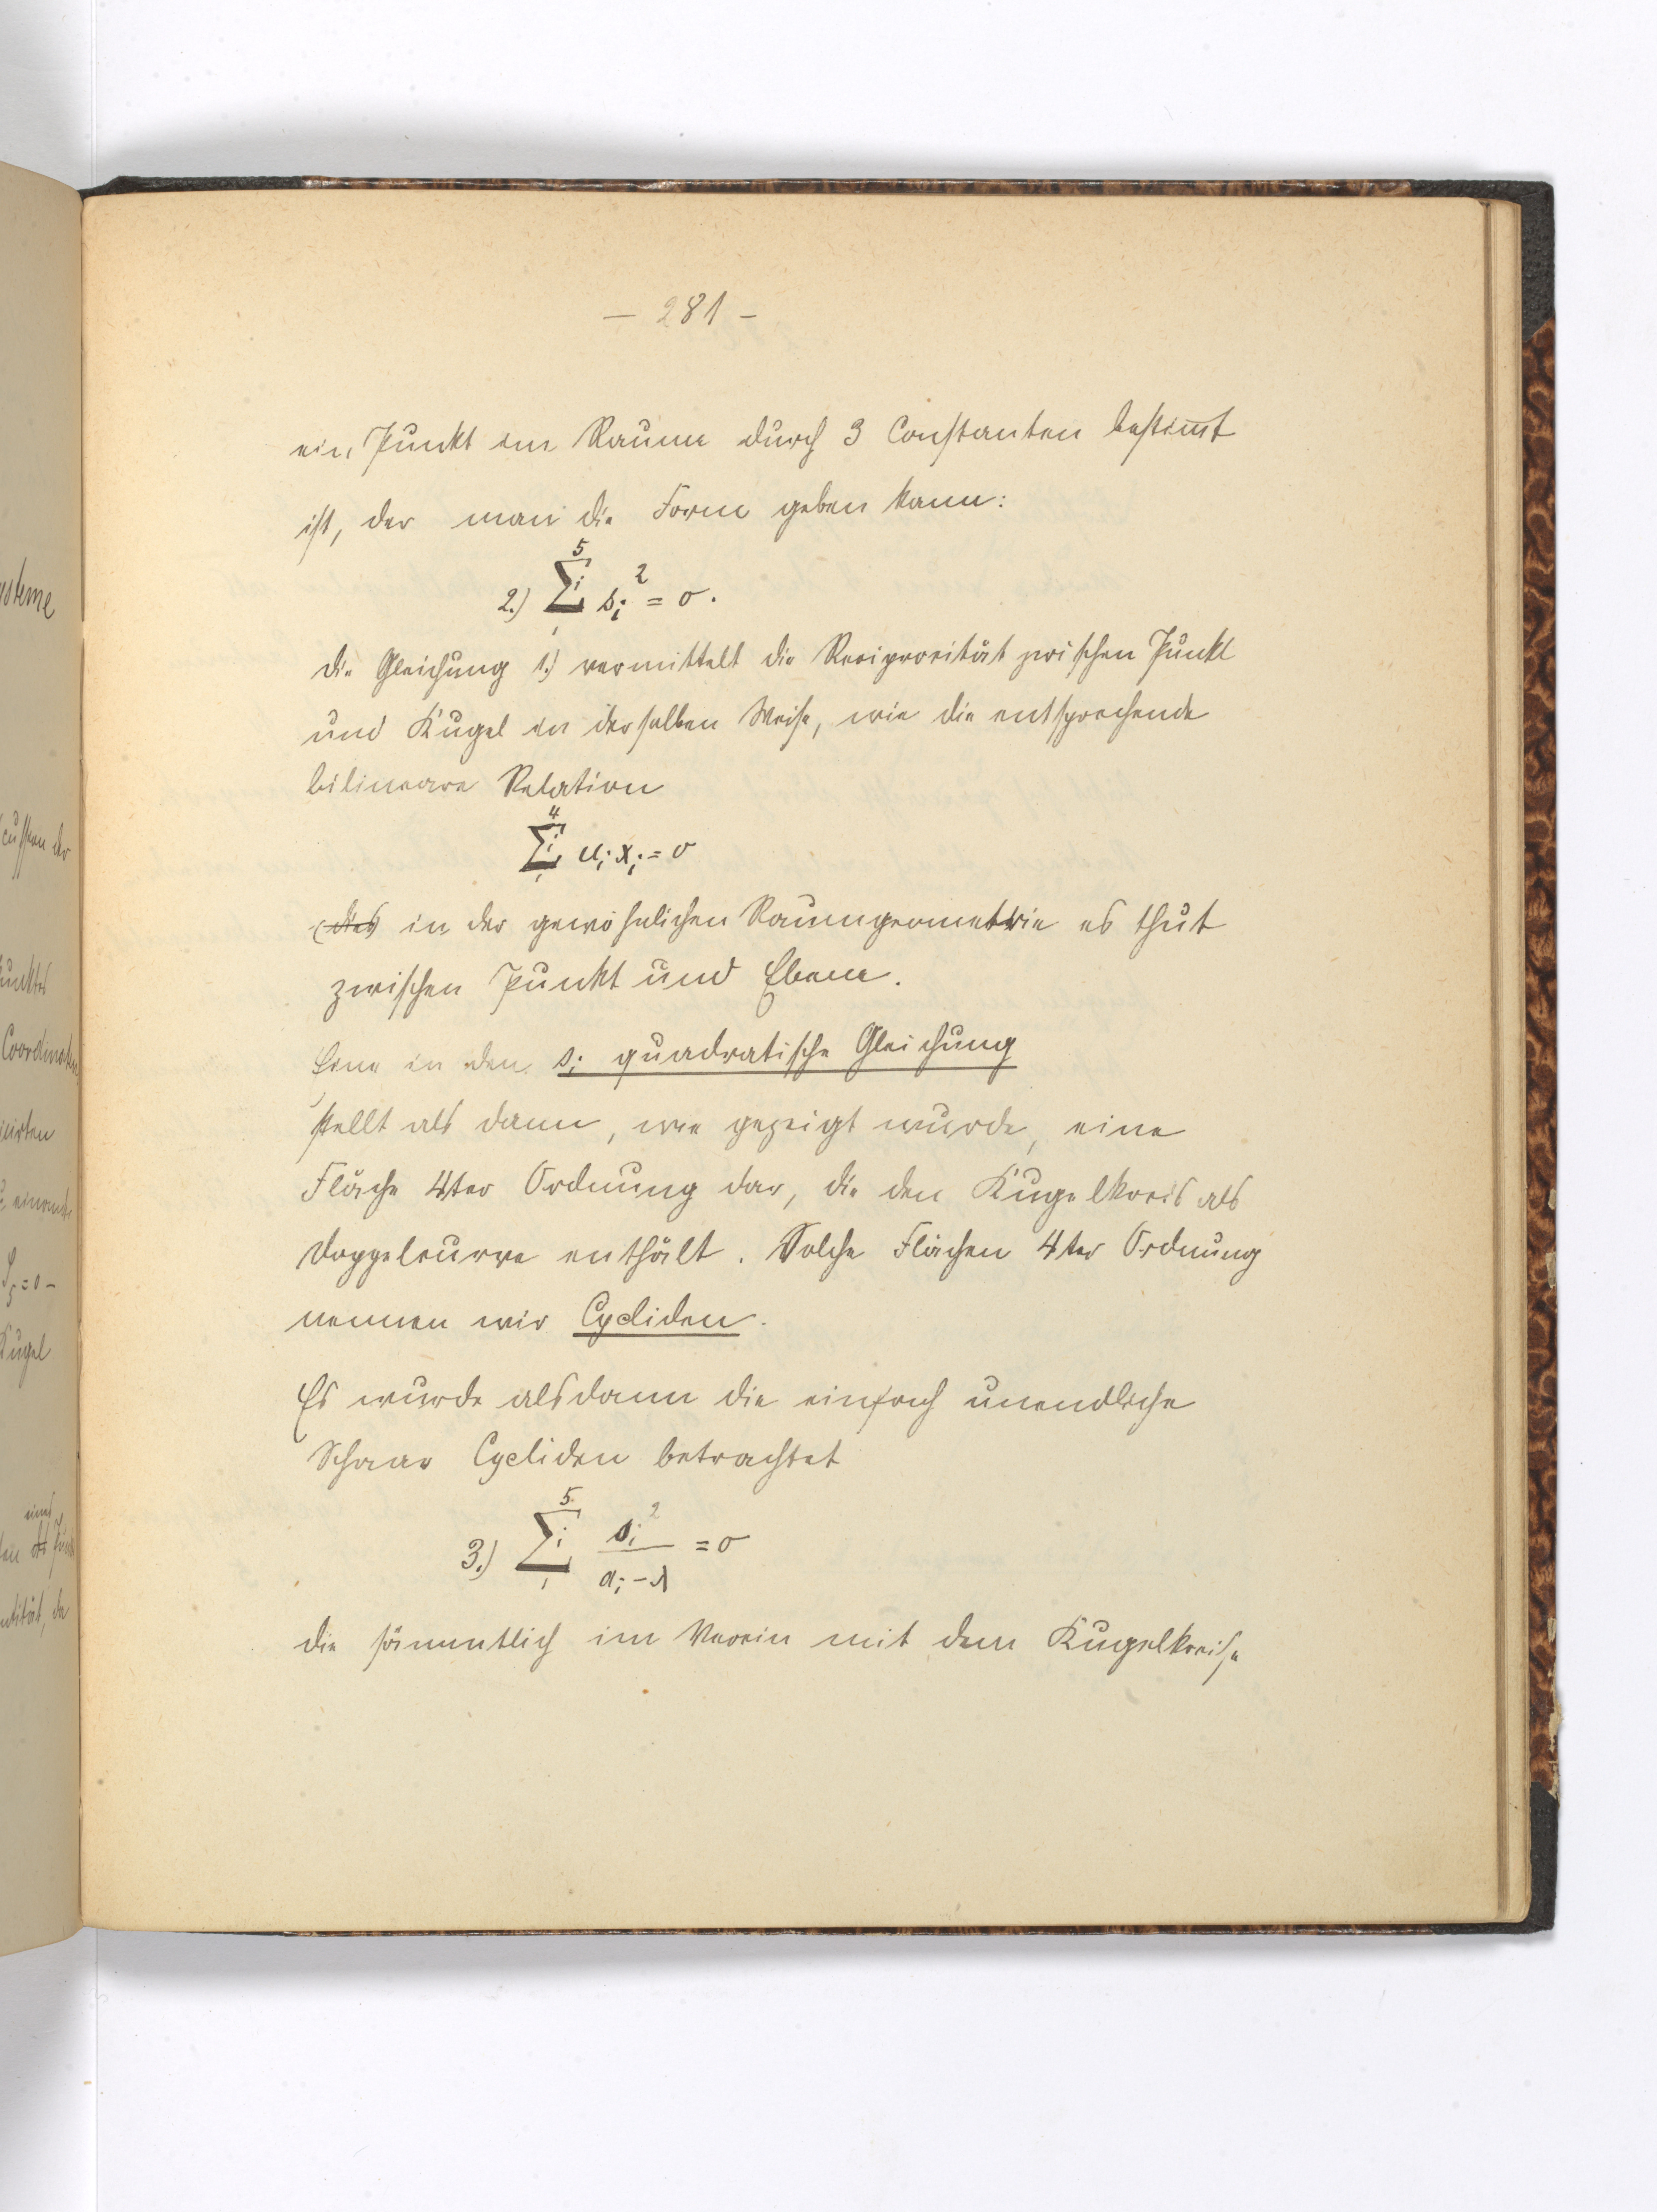 — 281 —
ein Punkt im Raume durch 3 Constanten bestimmt
ist, der man die Form geben kann:
2.) \sum_1^5 i s_i^2 = 0.
die Gleichung 1.) vermittelt die Reciprocität zwischen Punkt
und Kugel in derselben Weise, wie die entsprechende
bilineare Relation
\sum_1^4 i u_i x_i = 0
in der gewöhnlichen Raumgeometrie es thut
zwischen Punkt und Ebene.
Eine in den s_i quadratische Gleichung
stellt als dann, wie gezeigt wurde, eine
Fläche 4ter Ordnung dar, die den Kugelkreis als
Doppelcurve enthält. Solche Flächen 4ter Ordnung
nennen wir Cycliden.
Es wurde alsdann die einfach unendliche
Schaar Cycliden betrachtet
3.) \sum_1^5 i \frac{s_i^2}{a_i - λ} = 0
die sämmtlich im Verein mit dem Kugelkreise
usteme
unktes
Coordinaten
S_5 = 0 -
Kugel
eines